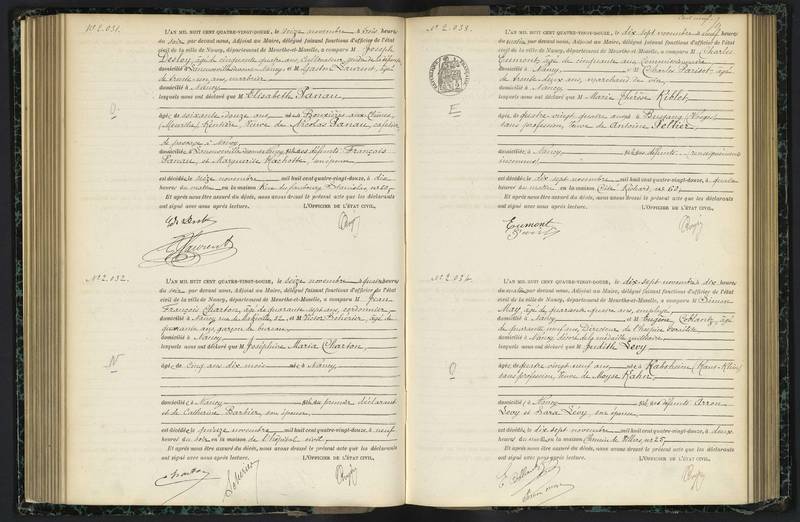 No 2.031.
L'AN MIL HUIT CENT QUATRE-VINGT-DOUZE, le seize novembre à trois heures
du soir par devant nous, Adjoint au Maire, délégué faisant fonctions d'officier de l'état
civil de la ville de Nancy, département de Meurthe-et-Moselle, a comparu M Joseph
âgé de cinquante quatre ans,
domicilié à et M Gaston Laurent, âgé
de trente un ans, marbrier
domicilié à Nancy
lesquels nous ont déclaré que M Elisabeth Panau,
âgée de soixante douze ans née à Rosières aux Salines,
(Meurthe) Rentière, Veuve de Nicolas Panau,
de à Nancy
domiciliée à fille des défunts François
Panau, et Marguerite Hachotte,
est décédée le seize novembre mil huit cent quatre-vingt-douze, à dix
heures du matin en la maison Rue du faubourg Stanislas no 60,
Et après nous être assuré du décès, nous avons dressé le présent acte que les déclarants
ont signé avec nous après lecture. L'OFFICIER DE L'ÉTAT CIVIL,
Laurent
No 2.032.
L'AN MIL HUIT CENT QUATRE-VINGT-DOUZE, le seize novembre à heures
du soir par devant nous, Adjoint au Maire, délégué faisant fonctions d'officier de l'état
civil de la ville de Nancy, département de Meurthe-et-Moselle, a comparu M Jean
François Charton, âgé de quarante sept ans, cordonnier
domicilié à Nancy et M Victor âgé de
quarante ans, garçon de bureau
domicilié à Nancy
lesquels nous ont déclaré que M Joséphine Maria Charton
âgée de cinq ans dix mois née à Nancy
domiciliée à Nancy fille du premier déclarant
et de Catherine Barbier, son épouse
est décédée le quinze novembre mil huit cent quatre-vingt-douze, à neuf
heures du soir en la maison de l'hôpital civil,
Et après nous être assuré du décès, nous avons dressé le présent acte que les déclarants
ont signé avec nous après lecture. L'OFFICIER DE L'ÉTAT CIVIL,
Charton
No 2.033.
L'AN MIL HUIT CENT QUATRE-VINGT-DOUZE, le dix sept novembre à heures
du matin par devant nous, Adjoint au Maire, délégué faisant fonctions d'officier de l'état
civil de la ville de Nancy, département de Meurthe-et-Moselle, a comparu M Charles
Eumont, âgé de cinquante ans, Commissionnaire
domicilié à Nancy et M Charles Parisot, âgé
de trente deux ans, marchand de vin,
domicilié à Nancy
lesquels nous ont déclaré que M Marie Thérèse Kiblet,
E
âgée de quatre vingt quatre ans née à Bussang (Vosges)
sans profession, Veuve de Antoine Peltier,
domiciliée à Nancy fille des défunts, renseignements
inconnus
est décédée le dix sept novembre mil huit cent quatre-vingt-douze, à quatre
heures du matin en la maison Cité Richard, no 60,
Et après nous être assuré du décès, nous avons dressé le présent acte que les déclarants
ont signé avec nous après lecture. L'OFFICIER DE L'ÉTAT CIVIL,
Eumont
No 2.034.
L'AN MIL HUIT CENT QUATRE-VINGT-DOUZE, le dix sept novembre à dix heures
du matin par devant nous, Adjoint au Maire, délégué faisant fonctions d'officier de l'état
civil de la ville de Nancy, département de Meurthe-et-Moselle, a comparu M Simon
May, âgé de quarante quatre ans, employé
domicilié à Nancy et M Eugène Coblentz, âgé
de quarante neuf ans, Directeur de l'hospice israélite,
domicilié à Nancy décoré de la médaille militaire,
lesquels nous ont déclaré que M Judith Levy
âgée de quatre vingt neuf ans née à Habsheim (Haut-Rhin)
sans profession, Veuve de Moyse Kahn,
domiciliée à Nancy fille des défunts Arron
Levy et Sara Lévy, son épouse
est décédée le dix sept novembre mil huit cent quatre-vingt-douze, à deux
heures du matin en la maison Chemin de Villers no 25,
Et après nous être assuré du décès, nous avons dressé le présent acte que les déclarants
ont signé avec nous après lecture. L'OFFICIER DE L'ÉTAT CIVIL,